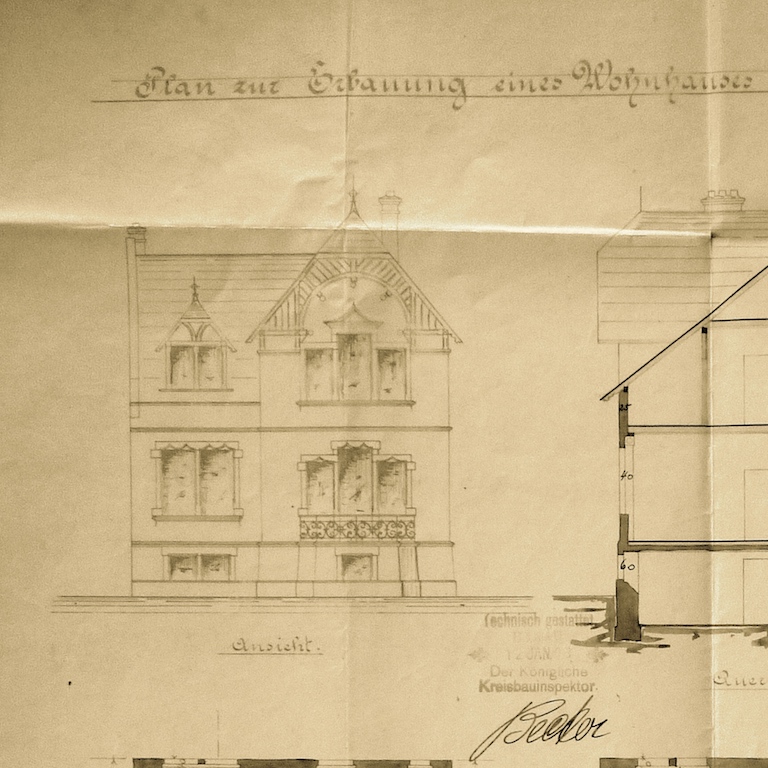 Plan zur Erbauung eines Wohnhauses
40
60
Ansicht.
Technisch gestattet
12 JAN.
Der Königliche
Kreisbauinspektor.
Becker
Quer